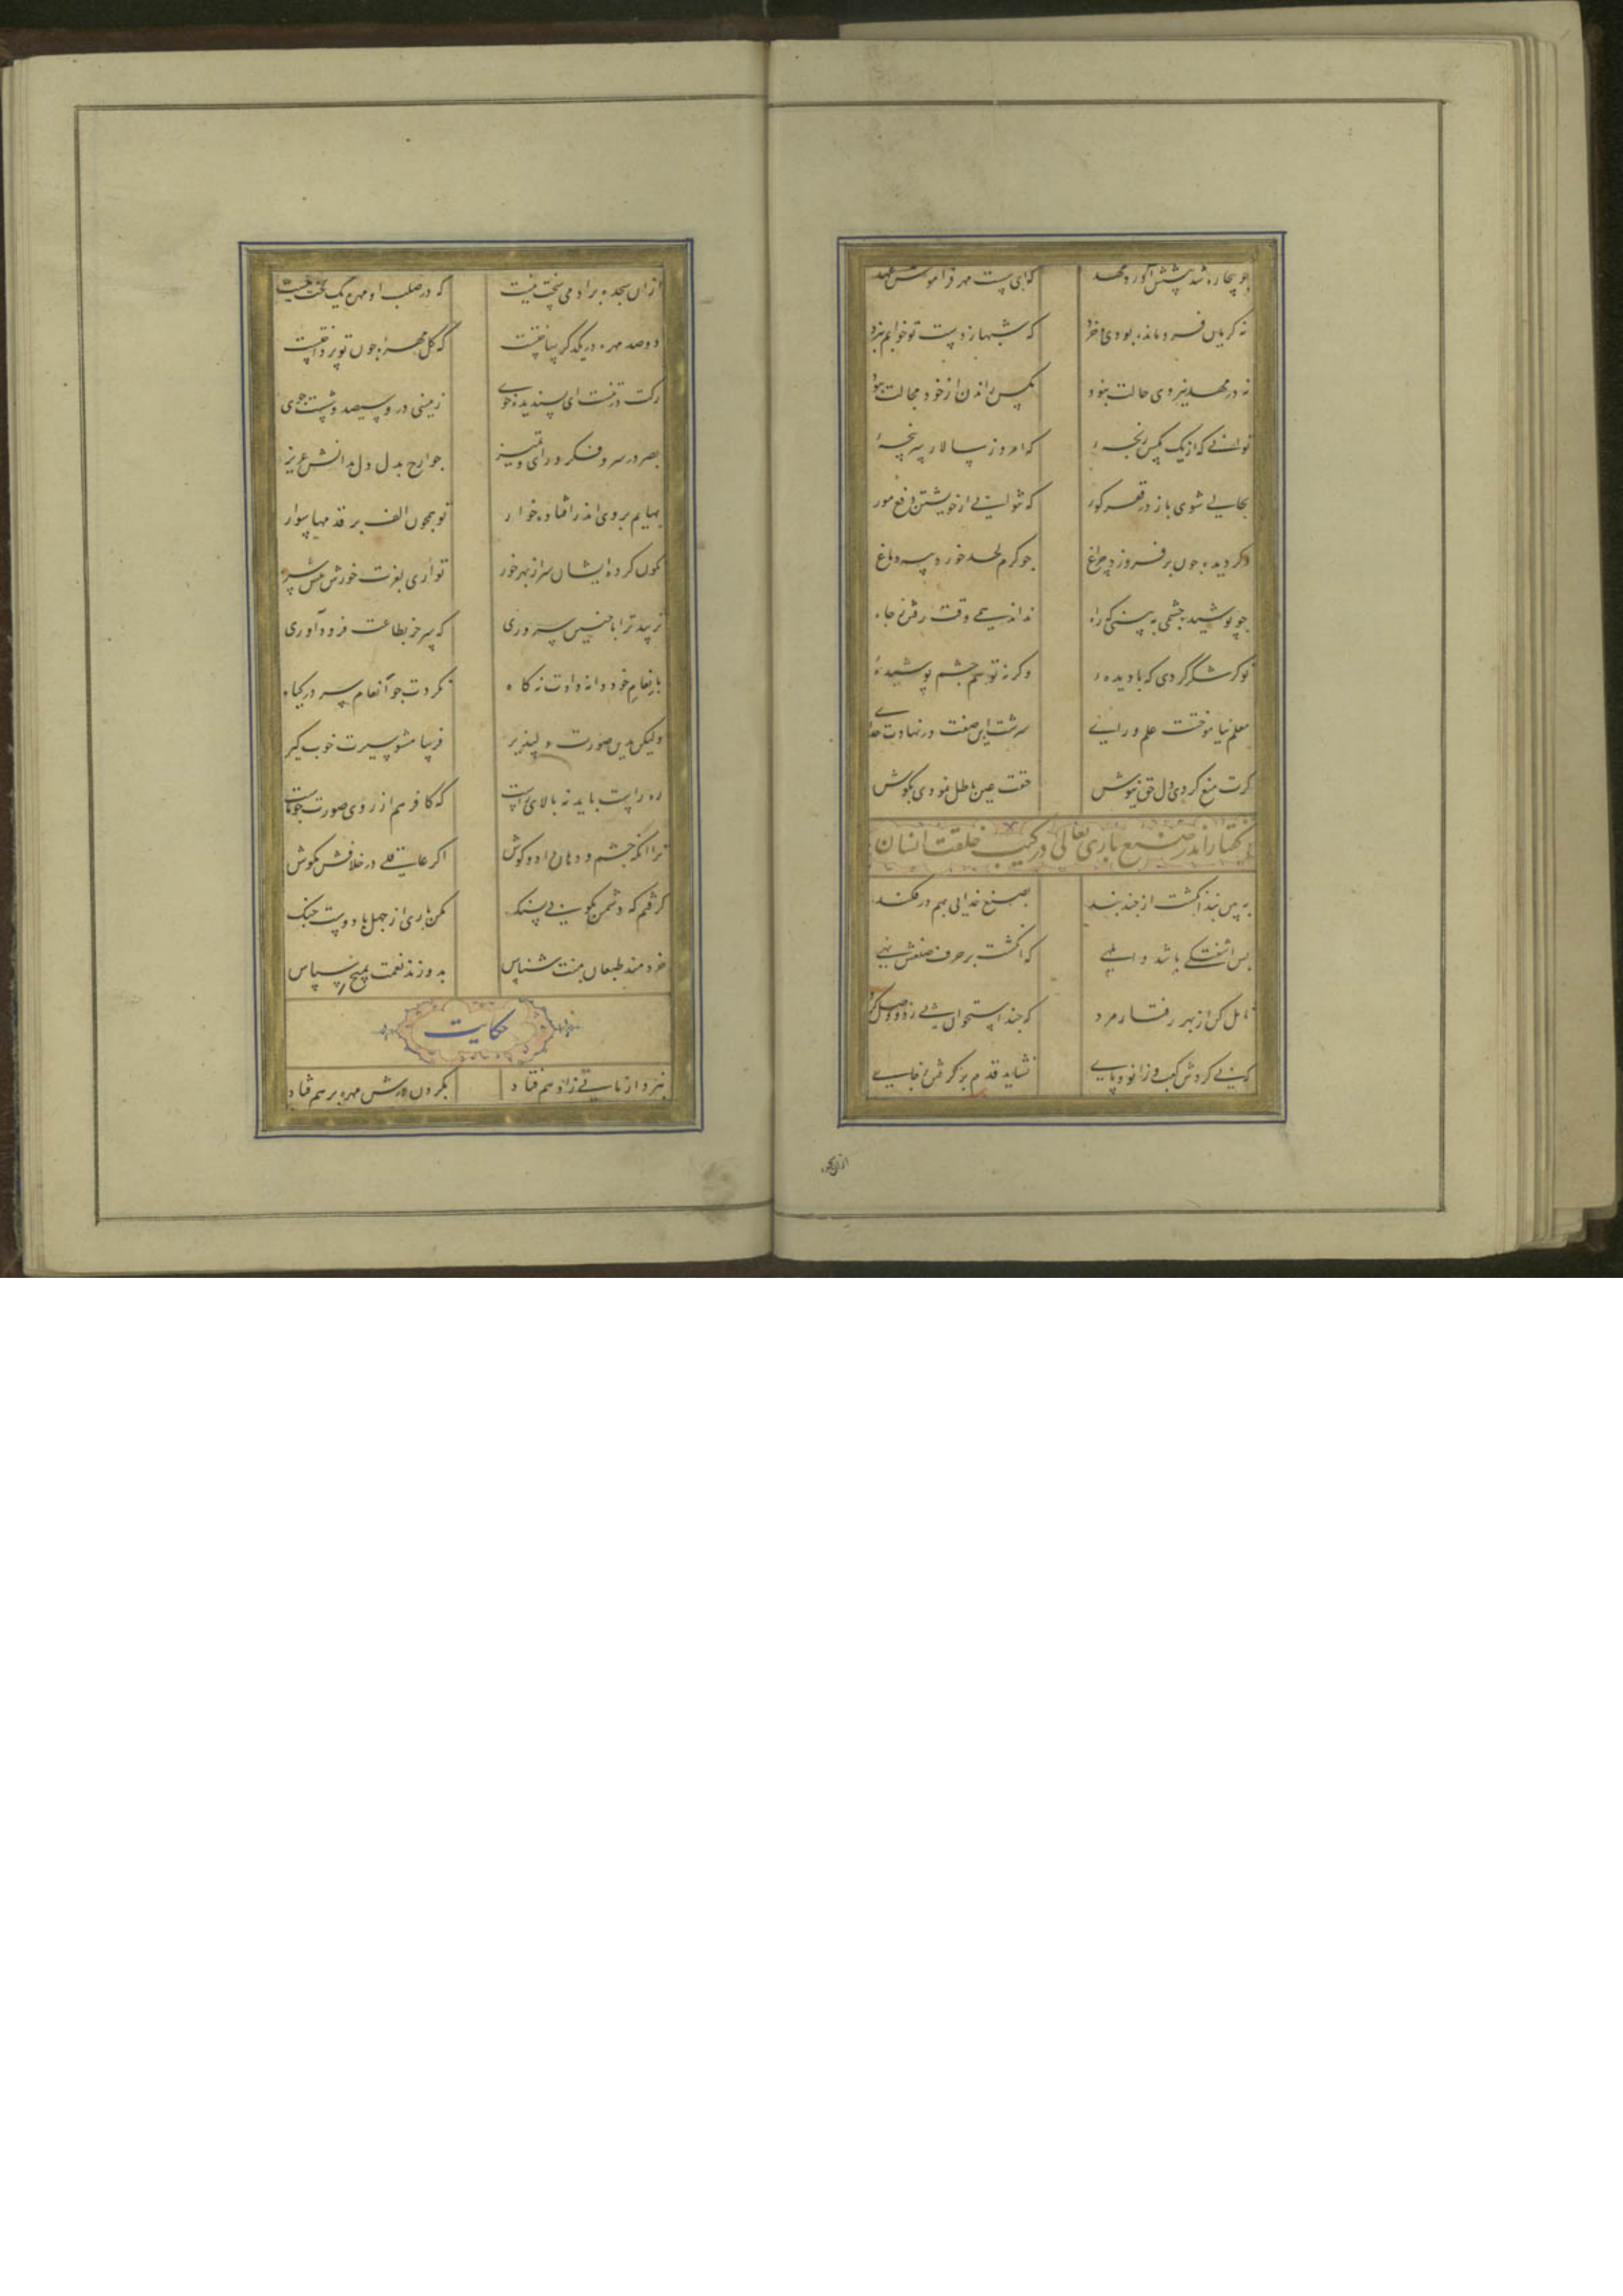 چو بیچاره شد پیشش آورد مهد که ای سست مهر فراموش عهد
نه کریان فرومانده بودی و خرد که شبها ز دست تو خوابم نبرد
نه در مهد نیروی حالت نبود مکس راندن از خود مجالت نبود
توانی که از یک مکس رنجه که امروز سالار سرپنجه
بحالی شوی باز در قعر کور که نتوانی از خویشتن دفع مور
دکر دیده چون برفروزد چراغ چو کرم لحد خورد پیه دماغ
چو پوشیده چشمی ببینی که راه نداند همی وقت رفتن ز چاه
تو کر شکر کردی که با دیده وکرنه تو هم چشم پوشیده
معلم نیاموختت علم و رای سرشت این صفت در نهادت خدای
کرت منع کردی دل حق نیوش حقت عین باطل نمودی بکوش
کفتار اندر صنع باری تعالی در ترکیب خلقت انسان
ببین تا یک انکشت از چند بند بصنع خدایی بهم درفکند
پس آشفتکی باشد و ابلهی که انکشت بر حرف صنعش نهی
تامل کن از بهر رفتار مرد که چند استخوان پی زد و وصل کرد
که بی کردش کعب و زانو و پای نشاید قدم برکرفتن ز جای
ازان سجده
ازان سجده بر آدمی سخت نیست که در صلب او مهره یک لخت نیست
دو صد مهره در یکدکر ساختست که کل مهره چون تو پرداختست
رکت در تنست ای پسندیده خوی زمینی درو سیصد و شصت جوی
بصر در سر و فکر و رای و تمیز جوارح بدل دل بدانش عزیز
بهایم بروی اندر افتاده خوار تو همچون الف بر قدمها سوار
نکون کرده ایشان سر از بهر خور تو آری بعزت خورش پیش سر
نزیبد ترا با چنین سروری که سر جز بطاعت فرود آوری
بانعام خود دانه دادت نه کاه نکردت چو انعام سر در کیاه
ولیکن بدین صورت دلپذیر فریبا مشو سیرت خوب کیر
ره راست باید نه بالای راست که کافر هم از روی صورت چو ماست
ترا آنکه چشم و دهان داد و کوش اکر عاقلی در خلافش مکوش
کرفتم که دشمن بکوبی بسنک مکن باری از جهل با دوست جنک
خردمند طبعان منت شناس بدوزند نعمت بمیخ سپاس
حکایت
نبرد آزمایی ز ادهم فتاد بکردن درش مهره بر هم فتاد